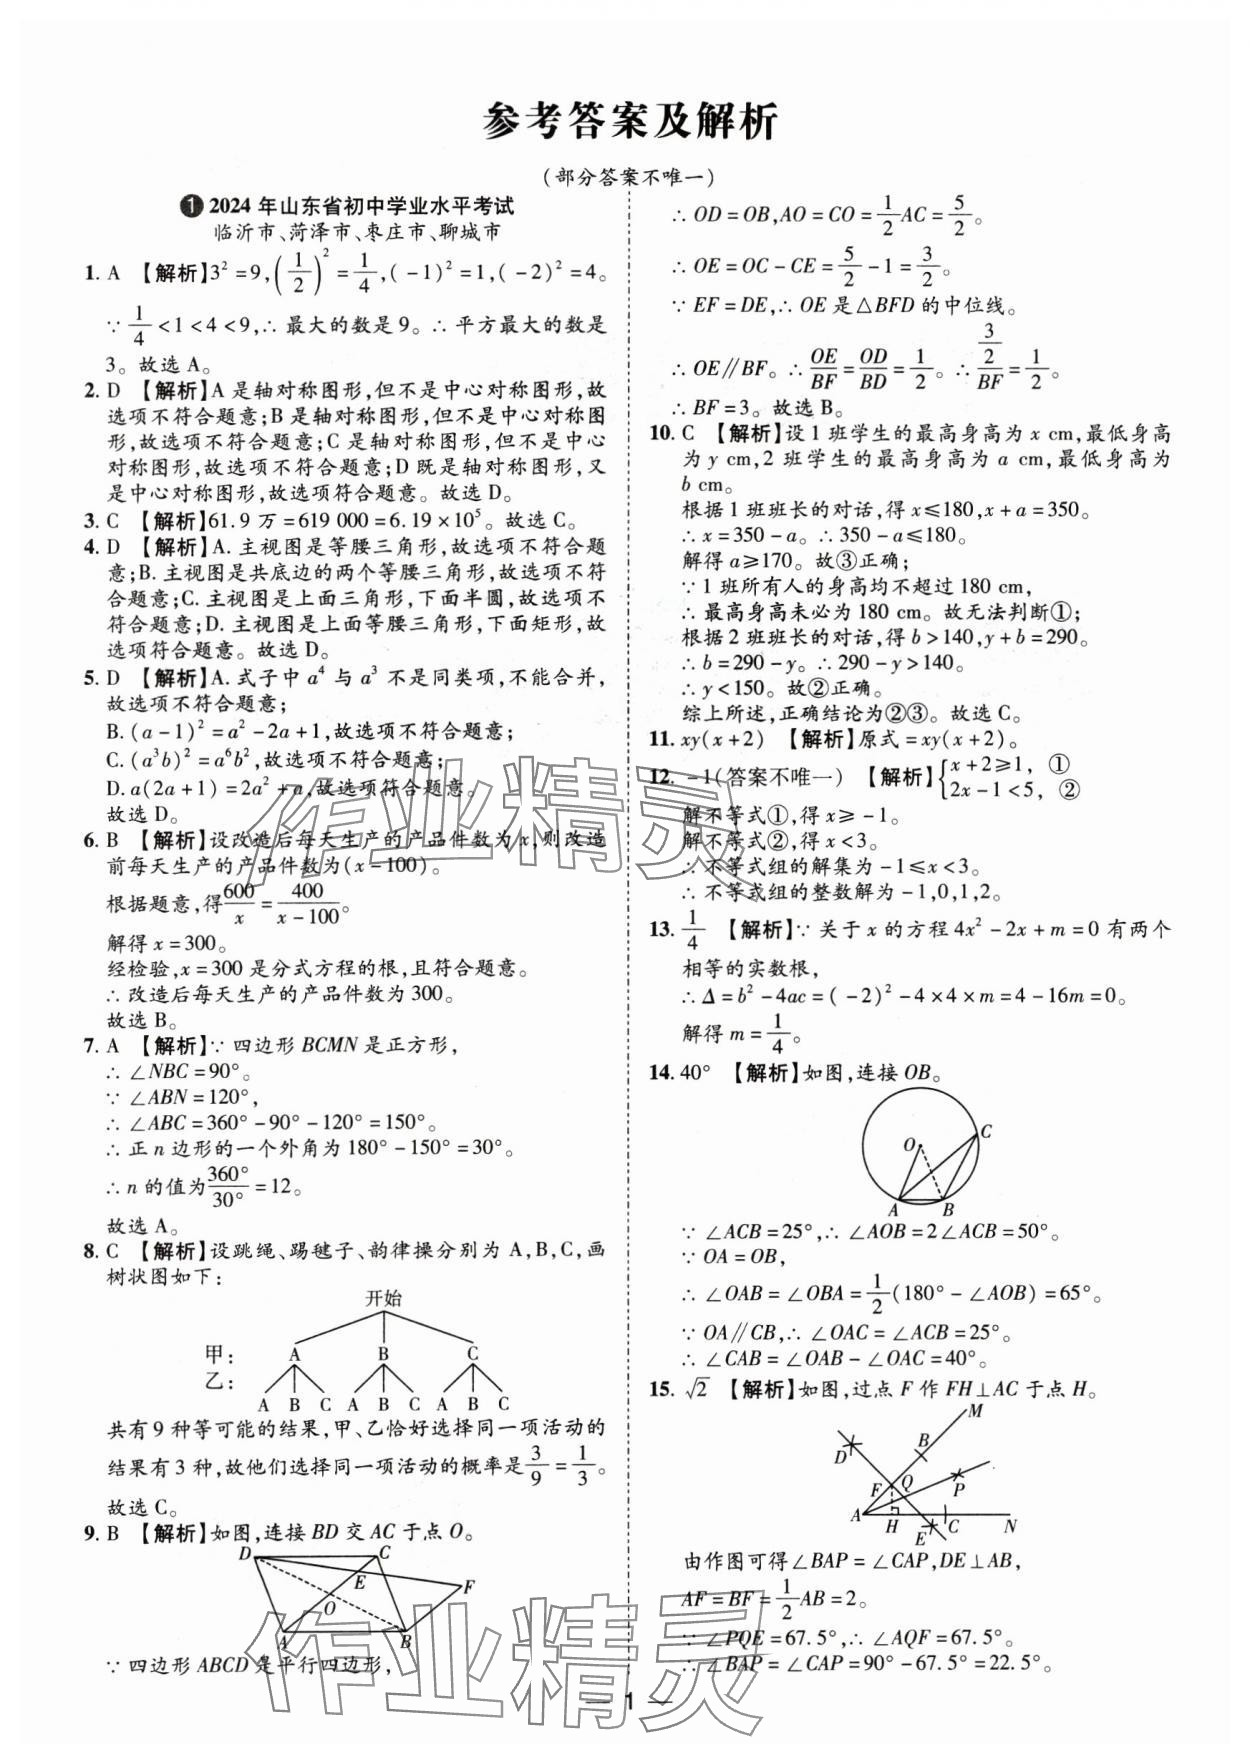 参考答案及解析
(部分答案不唯一)
❶ 2024年山东省初中学业水平考试
临沂市、菏泽市、枣庄市、聊城市
1. A 【解析】3²=9,(1/2)²=1/4,(-1)²=1,(-2)²=4。
∵1/4<1<4<9,∴最大的数是9。∴平方最大的数是
3。故选A。
2. D 【解析】A是轴对称图形,但不是中心对称图形,故
选项不符合题意;B是轴对称图形,但不是中心对称图
形,故选项不符合题意;C是轴对称图形,但不是中心
对称图形,故选项不符合题意;D既是轴对称图形,又
是中心对称图形,故选项符合题意。故选D。
3. C 【解析】61.9万=619 000=6.19×10⁵。故选C。
4. D 【解析】A.主视图是等腰三角形,故选项不符合题
意;B.主视图是共底边的两个等腰三角形,故选项不符
合题意;C.主视图是上面三角形,下面半圆,故选项不
符合题意;D.主视图是上面等腰三角形,下面矩形,故
选项符合题意。故选D。
5. D 【解析】A.式子中a⁴与a³不是同类项,不能合并,
故选项不符合题意;
B.(a-1)²=a²-2a+1,故选项不符合题意;
C.(a³b)²=a⁶b²,故选项不符合题意;
D.a(2a+1)=2a²+a,故选项符合题意。
故选D。
6. B 【解析】设改造后每天生产的产品件数为x,则改造
前每天生产的产品件数为(x-100)。
根据题意,得600/x=400/(x-100)。
解得x=300。
经检验,x=300是分式方程的根,且符合题意。
∴改造后每天生产的产品件数为300。
故选B。
7. A 【解析】∵四边形BCMN是正方形,
∴∠NBC=90°。
∵∠ABN=120°,
∴∠ABC=360°-90°-120°=150°。
∴正n边形的一个外角为180°-150°=30°。
∴n的值为360°/30°=12。
故选A。
8. C 【解析】设跳绳、踢毽子、韵律操分别为A,B,C,画
树状图如下:
开始
甲: A B C
乙: A B C A B C A B C
共有9种等可能的结果,甲、乙恰好选择同一项活动的
结果有3种,故他们选择同一项活动的概率是3/9=1/3。
故选C。
9. B 【解析】如图,连接BD交AC于点O。
D C
E F
O
A B
∵四边形ABCD是平行四边形,
∴OD=OB,AO=CO=1/2AC=5/2。
∴OE=OC-CE=5/2-1=3/2。
∵EF=DE,∴OE是△BFD的中位线。
∴OE∥BF。∴OE/BF=OD/BD=1/2。∴(3/2)/BF=1/2。
∴BF=3。故选B。
10. C 【解析】设1班学生的最高身高为x cm,最低身高
为y cm,2班学生的最高身高为a cm,最低身高为
b cm。
根据1班班长的对话,得x≤180,x+a=350。
∴x=350-a。∴350-a≤180。
解得a≥170。故③正确;
∵1班所有人的身高均不超过180 cm,
∴最高身高未必为180 cm。故无法判断①;
根据2班班长的对话,得b>140,y+b=290。
∴b=290-y。∴290-y>140。
∴y<150。故②正确。
综上所述,正确结论为②③。故选C。
11. xy(x+2) 【解析】原式=xy(x+2)。
12. -1(答案不唯一) 【解析】{x+2≥1, ①
2x-1<5, ②
解不等式①,得x≥-1。
解不等式②,得x<3。
∴不等式组的解集为-1≤x<3。
∴不等式组的整数解为-1,0,1,2。
13. 1/4 【解析】∵关于x的方程4x²-2x+m=0有两个
相等的实数根,
∴Δ=b²-4ac=(-2)²-4×4×m=4-16m=0。
解得m=1/4。
14. 40° 【解析】如图,连接OB。
O C
A B
∵∠ACB=25°,∴∠AOB=2∠ACB=50°。
∵OA=OB,
∴∠OAB=∠OBA=1/2(180°-∠AOB)=65°。
∵OA∥CB,∴∠OAC=∠ACB=25°。
∴∠CAB=∠OAB-∠OAC=40°。
15. √2 【解析】如图,过点F作FH⊥AC于点H。
M
D B
F Q P
A H E C N
由作图可得∠BAP=∠CAP,DE⊥AB,
AF=BF=1/2AB=2。
∵∠PQE=67.5°,∴∠AQF=67.5°。
∴∠BAP=∠CAP=90°-67.5°=22.5°。
— 1 —
作业精灵
作业精灵